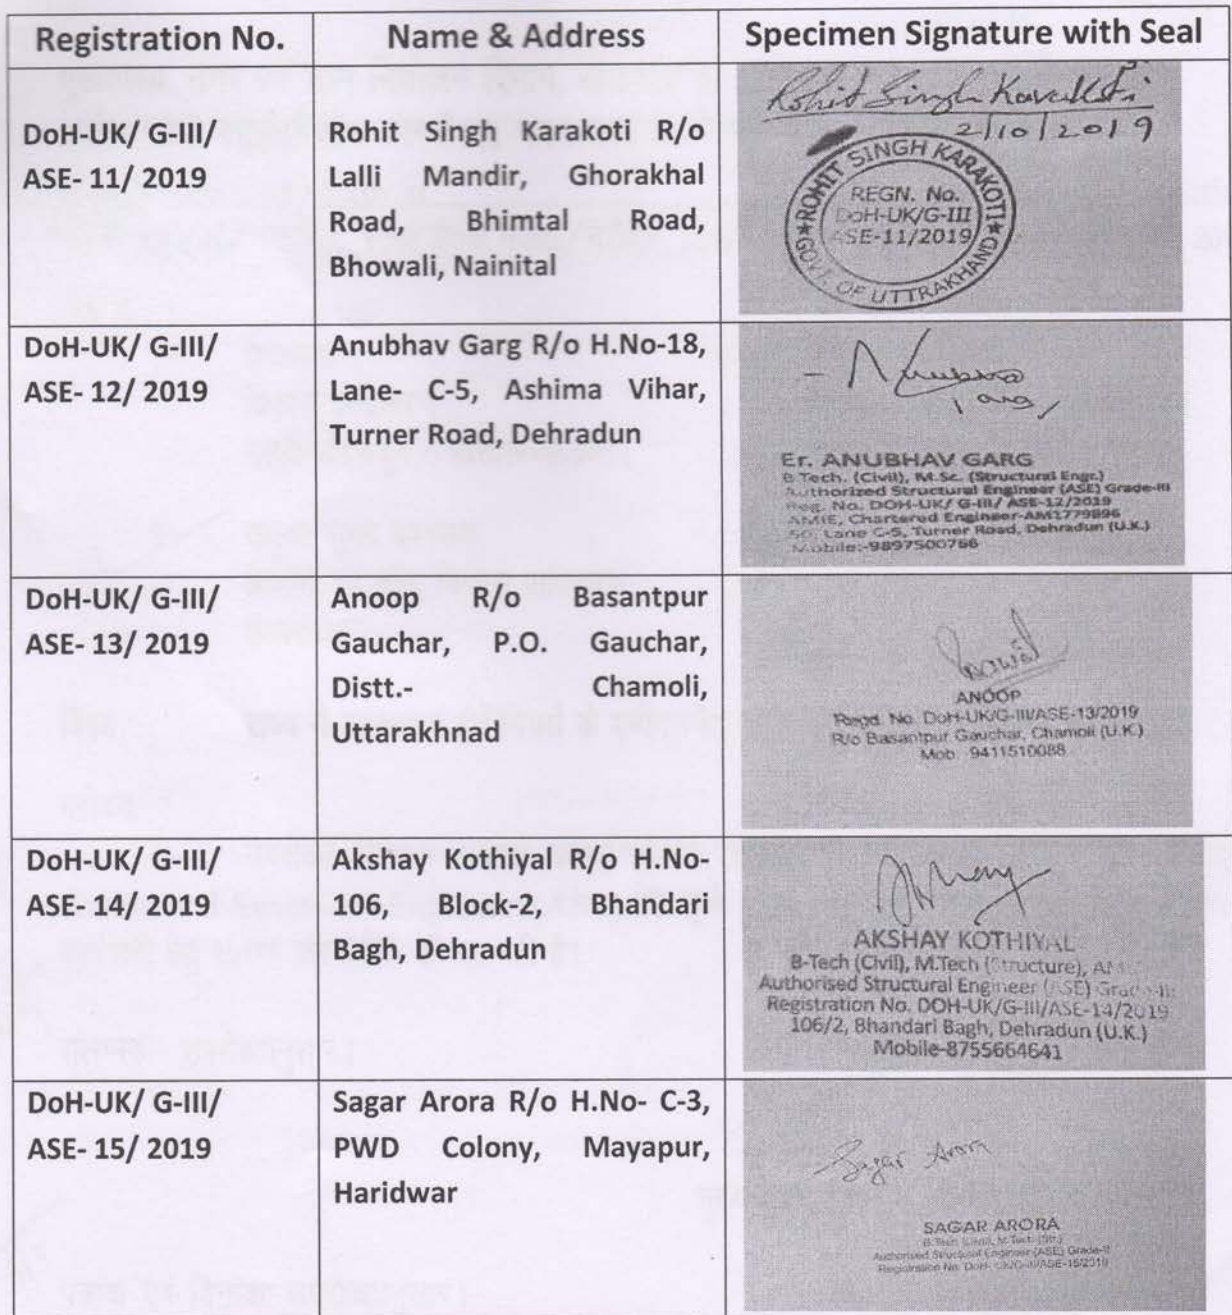 Registration No.
Name & Address
Specimen Signature with Seal
DoH-UK/ G-III/
ASE- 11/ 2019
Rohit Singh Karakoti R/o
Lalli Mandir, Ghorakhal
Road, Bhimtal Road,
Bhowali, Nainital
Rohit Singh Karakoti
2/10/2019
★ROHIT SINGH KARAKOTI★
REGN. No.
DoH-UK/G-III
ASE-11/2019
GOVT. OF UTTRAKHAND
DoH-UK/ G-III/
ASE- 12/ 2019
Anubhav Garg R/o H.No-18,
Lane- C-5, Ashima Vihar,
Turner Road, Dehradun
Er. ANUBHAV GARG
B.Tech. (Civil), M.Sc. (Structural Engr.)
Authorized Structural Engineer (ASE) Grade-III
Reg. No. DOH-UK/ G-III/ ASE-12/2019
AMIE, Chartered Engineer-AM1779896
Lane C-5, Turner Road, Dehradun (U.K.)
Mobile:-9897500766
DoH-UK/ G-III/
ASE- 13/ 2019
Anoop R/o Basantpur
Gauchar, P.O. Gauchar,
Distt.- Chamoli,
Uttarakhnad
ANOOP
Regd. No. DoH-UK/G-III/ASE-13/2019
R/o Basantpur Gauchar, Chamoli (U.K.)
Mob. 9411510088
DoH-UK/ G-III/
ASE- 14/ 2019
Akshay Kothiyal R/o H.No-
106, Block-2, Bhandari
Bagh, Dehradun
Akshay
AKSHAY KOTHIYAL
B-Tech (Civil), M.Tech (Structure),
Authorised Structural Engineer (ASE) Grade-III
Registration No. DOH-UK/G-III/ASE-14/2019
106/2, Bhandari Bagh, Dehradun (U.K.)
Mobile-8755664641
DoH-UK/ G-III/
ASE- 15/ 2019
Sagar Arora R/o H.No- C-3,
PWD Colony, Mayapur,
Haridwar
Sagar Arora
SAGAR ARORA
B.Tech (Civil), M.Tech (Str.)
Authorised Structural Engineer (ASE)
Registration No.